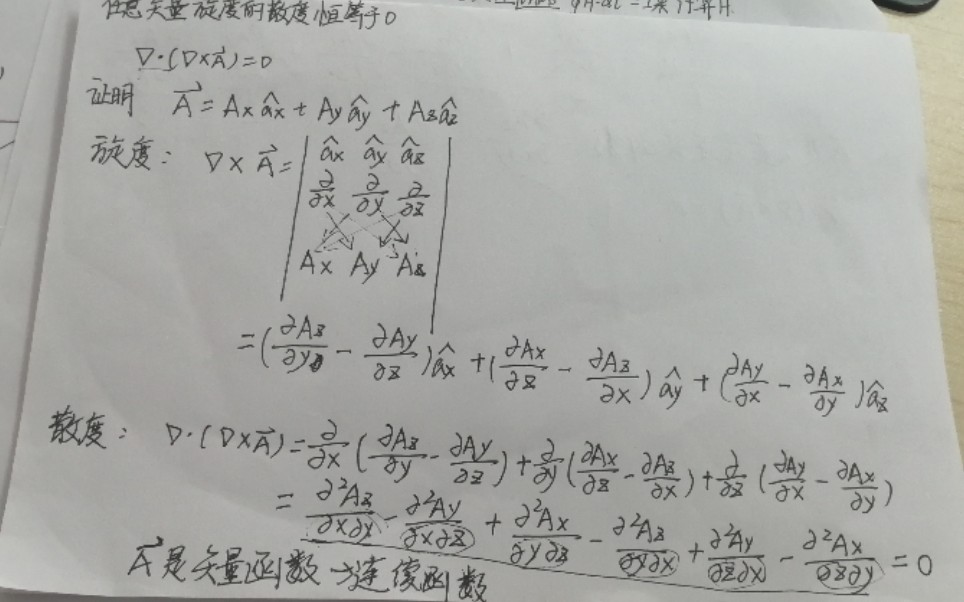 任意矢量旋度的散度恒等于0
∇·(∇×A⃗)=0
证明 A⃗ = Ax âx + Ay ây + Az âz
旋度: ∇×A⃗ = | âx ây âz
∂/∂x ∂/∂y ∂/∂z
Ax Ay Az |
=(∂Az/∂y - ∂Ay/∂z)âx + (∂Ax/∂z - ∂Az/∂x)ây + (∂Ay/∂x - ∂Ax/∂y)âz
散度: ∇·(∇×A⃗)=∂/∂x(∂Az/∂y - ∂Ay/∂z)+∂/∂y(∂Ax/∂z - ∂Az/∂x)+∂/∂z(∂Ay/∂x - ∂Ax/∂y)
= ∂²Az/∂x∂y - ∂²Ay/∂x∂z + ∂²Ax/∂y∂z - ∂²Az/∂y∂x + ∂²Ay/∂z∂x - ∂²Ax/∂z∂y = 0
A⃗是矢量函数→连续函数